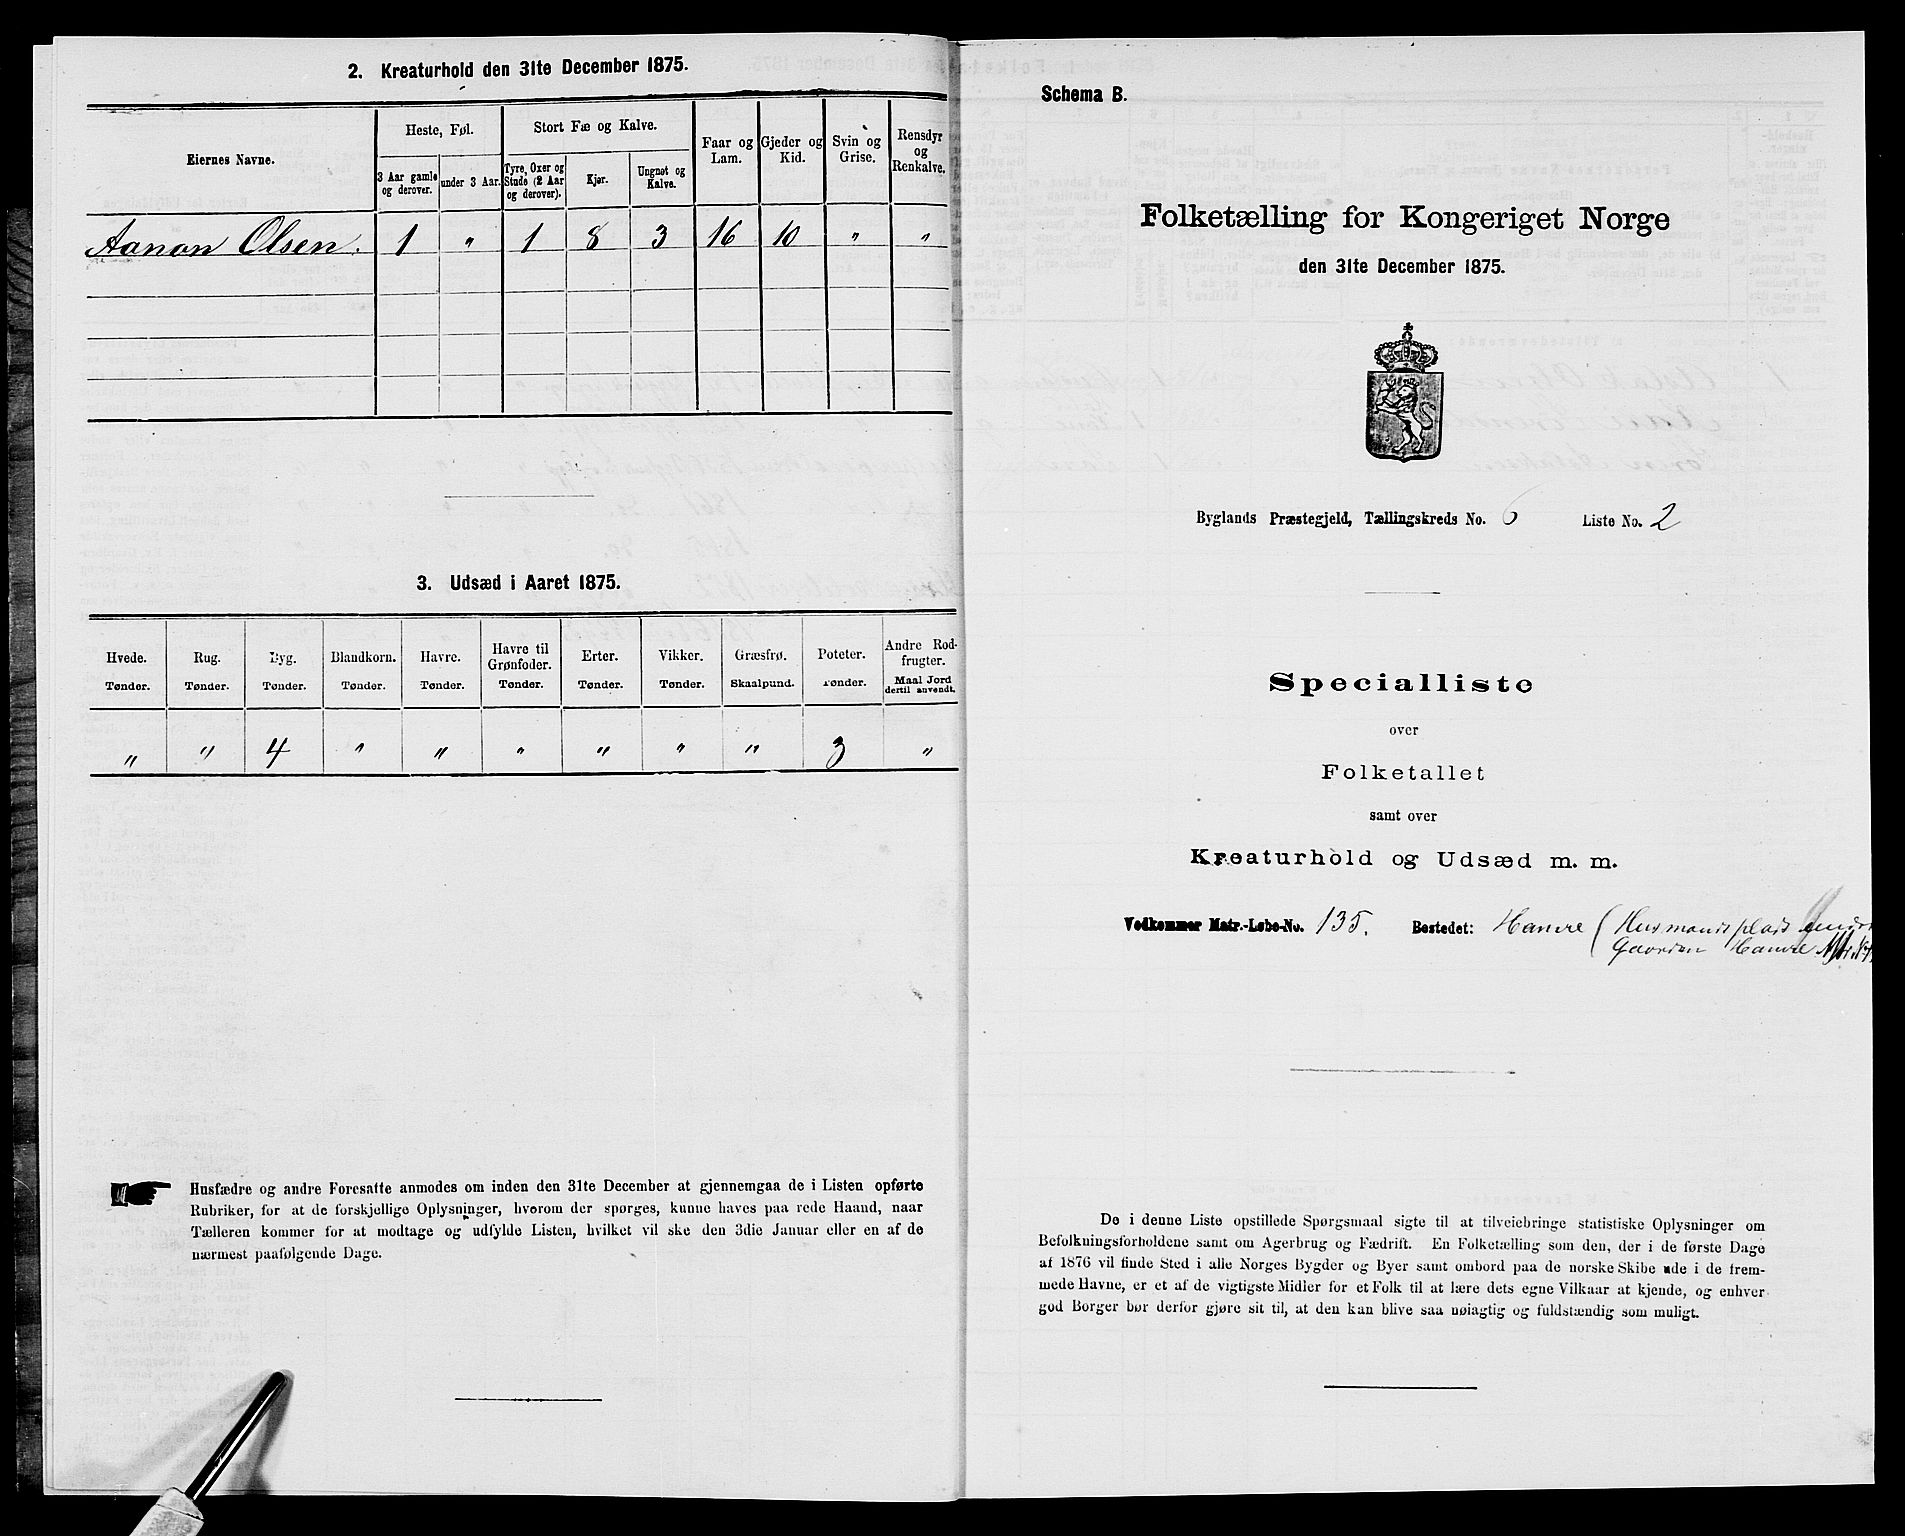 2. Kreaturhold den 31te December 1875.
Eiernes Navne.
Heste, Føl.
Stort Fæ og Kalve.
Faar og Lam.
Gjeder og Kid.
Svin og Grise.
Rensdyr og Renkalve.
3 Aar gamle og derover.
under 3 Aar.
Tyre, Oxer og Stude (2 Aar og derover).
Kjør.
Ungnøt og Kalve.
Aanon Olsen. 1 " 1 8 3 16 10 " "
3. Udsæd i Aaret 1875.
Hvede. Rug. Byg. Blandkorn. Havre. Havre til Grønfoder. Erter. Vikker. Græsfrø. Poteter. Andre Rodfrugter.
Tønder. Tønder. Tønder. Tønder. Tønder. Tønder. Tønder. Tønder. Skaalpund. Tønder. Maal Jord dertil anvendt.
" " 4 " " " " " " 3 "
Husfædre og andre Foresatte anmodes om inden den 31te December at gjennemgaa de i Listen opførte
Rubriker, for at de forskjellige Oplysninger, hvorom der spørges, kunne haves paa rede Haand, naar
Tælleren kommer for at modtage og udfylde Listen, hvilket vil ske den 3die Januar eller en af de
nærmest paafølgende Dage.
Schema B.
Folketælling for Kongeriget Norge
den 31te December 1875.
Byglands Præstegjeld, Tællingskreds No. 6 Liste No. 2
Specialliste
over
Folketallet
samt over
Kreaturhold og Udsæd m. m.
Vedkommer Matr.-Løbe-No. 135. Bostedet: Hamre (Husmandsplads under
Gaarden Hamre
De i denne Liste opstillede Spørgsmaal sigte til at tilveiebringe statistiske Oplysninger om
Befolkningsforholdene samt om Agerbrug og Fædrift. En Folketælling som den, der i de første Dage
af 1876 vil finde Sted i alle Norges Bygder og Byer samt ombord paa de norske Skibe ude i de frem-
mede Havne, er et af de vigtigste Midler for et Folk til at lære dets egne Vilkaar at kjende, og enhver
god Borger bør derfor gjøre sit til, at den kan blive saa nøiagtig og fuldstændig som muligt.